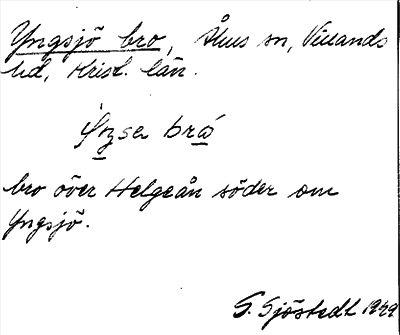 Yngsjö bro, Åhus sn, Villands
hd, Krist. län.
bro över Helgeån söder om
Yngsjö.
G. Sjöstedt 1949